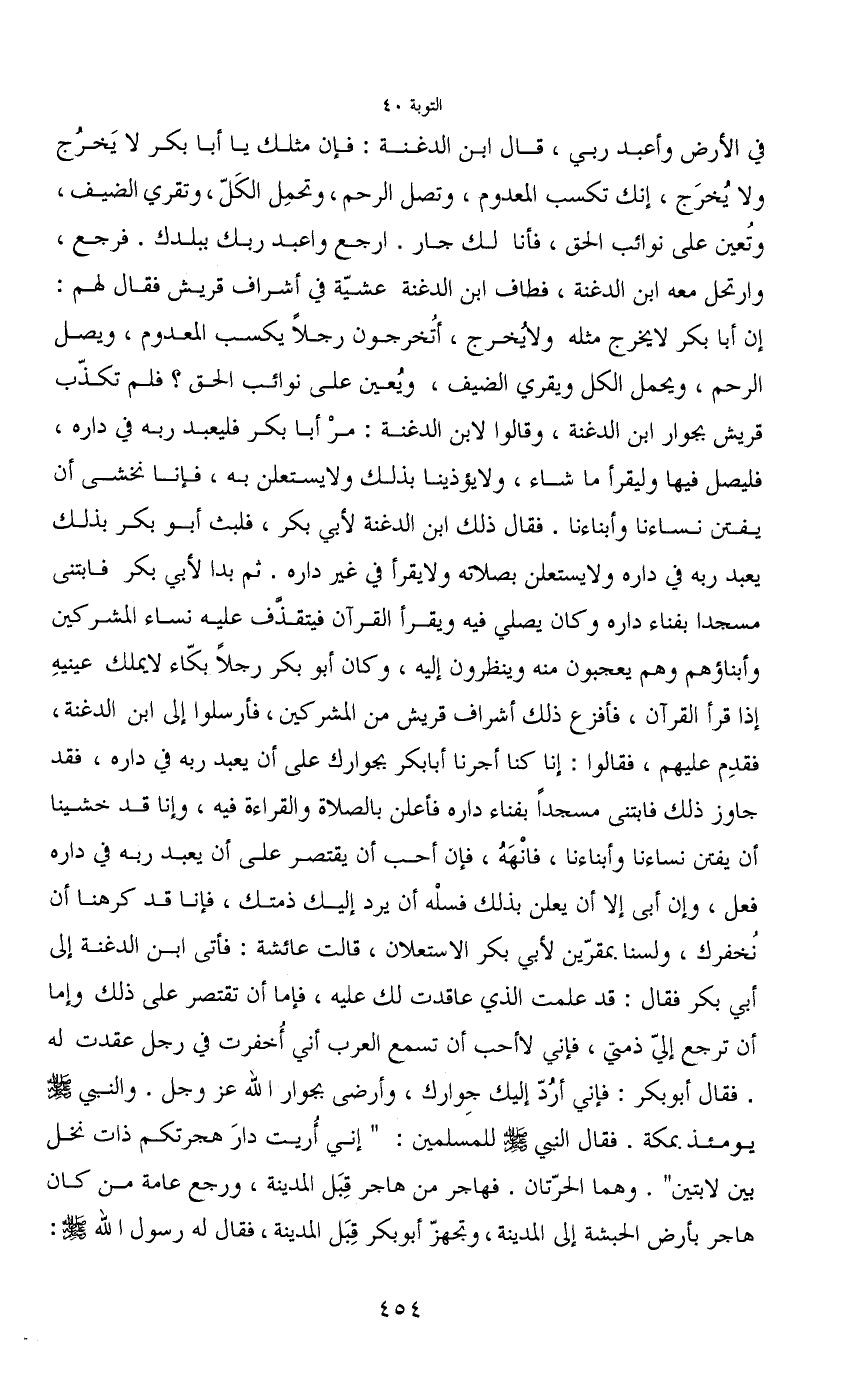 التوبة ٤٠
في الأرض وأعبد ربي ، قال ابن الدغنة : فإن مثلك يا أبا بكر لا يَخرُج
ولا يُخرَج ، إنك تكسب المعدوم ، وتصل الرحم ، وتحمِل الكَلّ ، وتقري الضيف ،
وتُعين على نوائب الحق ، فأنا لك جار . ارجع واعبد ربك ببلدك . فرجع ،
وارتحل معه ابن الدغنة ، فطاف ابن الدغنة عشيّة في أشراف قريش فقال لهم :
إن أبا بكر لايخرج مثله ولايُخرج ، أتُخرجون رجلاً يكسب المعدوم ، ويصل
الرحم ، ويحمل الكل ويقري الضيف ، ويُعين على نوائب الحق ؟ فلم تكذّب
قريش بجوار ابن الدغنة ، وقالوا لابن الدغنة : مرْ أبا بكر فليعبد ربه في داره ،
فليصل فيها وليقرأ ما شاء ، ولايؤذينا بذلك ولايستعلن به ، فإنا نخشى أن
يفتن نساءنا وأبناءنا . فقال ذلك ابن الدغنة لأبي بكر ، فلبث أبو بكر بذلك
يعبد ربه في داره ولايستعلن بصلاته ولايقرأ في غير داره . ثم بدا لأبي بكر فابتنى
مسجدا بفناء داره وكان يصلي فيه ويقرأ القرآن فيتقذَّف عليه نساء المشركين
وأبناؤهم وهم يعجبون منه وينظرون إليه ، وكان أبو بكر رجلاً بكّاء لايملك عينيهِ
إذا قرأ القرآن ، فأفزع ذلك أشراف قريش من المشركين ، فأرسلوا إلى ابن الدغنة ،
فقدِم عليهم ، فقالوا : إنا كنا أجرنا أبابكر بجوارك على أن يعبد ربه في داره ، فقد
جاوز ذلك فابتنى مسجداً بفناء داره فأعلن بالصلاة والقراءة فيه ، وإنا قد خشينا
أن يفتن نساءنا وأبناءنا ، فانْهَهُ ، فإن أحب أن يقتصر على أن يعبد ربه في داره
فعل ، وإن أبى إلا أن يعلن بذلك فسلْه أن يرد إليك ذمتك ، فإنا قد كرهنا أن
نُخفرك ، ولسنا بمقرّين لأبي بكر الاستعلان ، قالت عائشة : فأتى ابن الدغنة إلى
أبي بكر فقال : قد علمت الذي عاقدت لك عليه ، فإما أن تقتصر على ذلك وإما
أن ترجع إليّ ذمتي ، فإني لاأحب أن تسمع العرب أني أُخفرت في رجل عقدت له
. فقال أبوبكر : فإني أرُدّ إليك جِوارك ، وأرضى بجوار الله عز وجل . والنبي ﷺ
يومئذ بمكة . فقال النبي ﷺ للمسلمين : " إني أُريت دارَ هجرتكم ذات نخل
بين لابتين" . وهما الحرّتان . فهاجر من هاجر قِبَل المدينة ، ورجع عامة من كان
هاجر بأرض الحبشة إلى المدينة ، وتجهزّ أبوبكر قِبَل المدينة ، فقال له رسول الله ﷺ :
٤٥٤